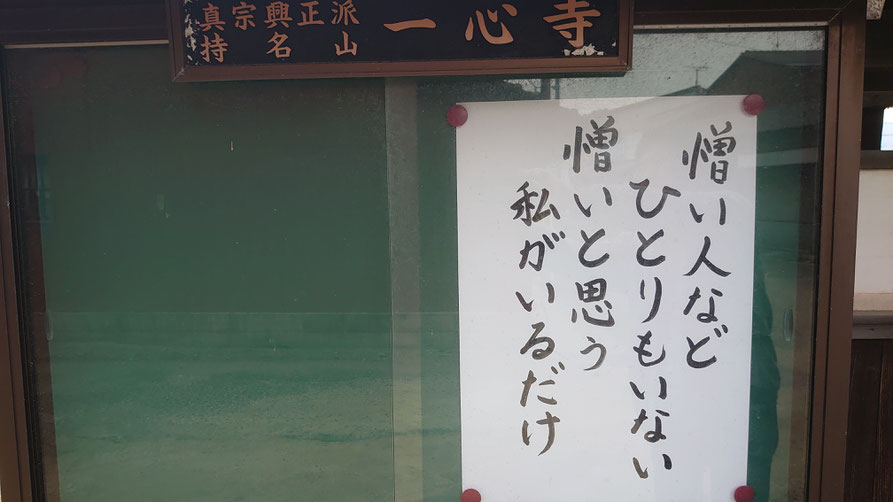 真宗興正派
持名山
一心寺
憎い人など
ひとりもいない
憎いと思う
私がいるだけ